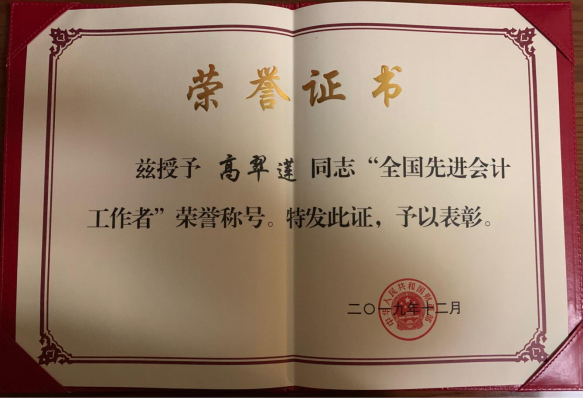 荣誉证书
兹授予 高翠莲 同志“全国先进会计
工作者”荣誉称号。特发此证，予以表彰。
二〇一九年十二月
中华人民共和国财政部